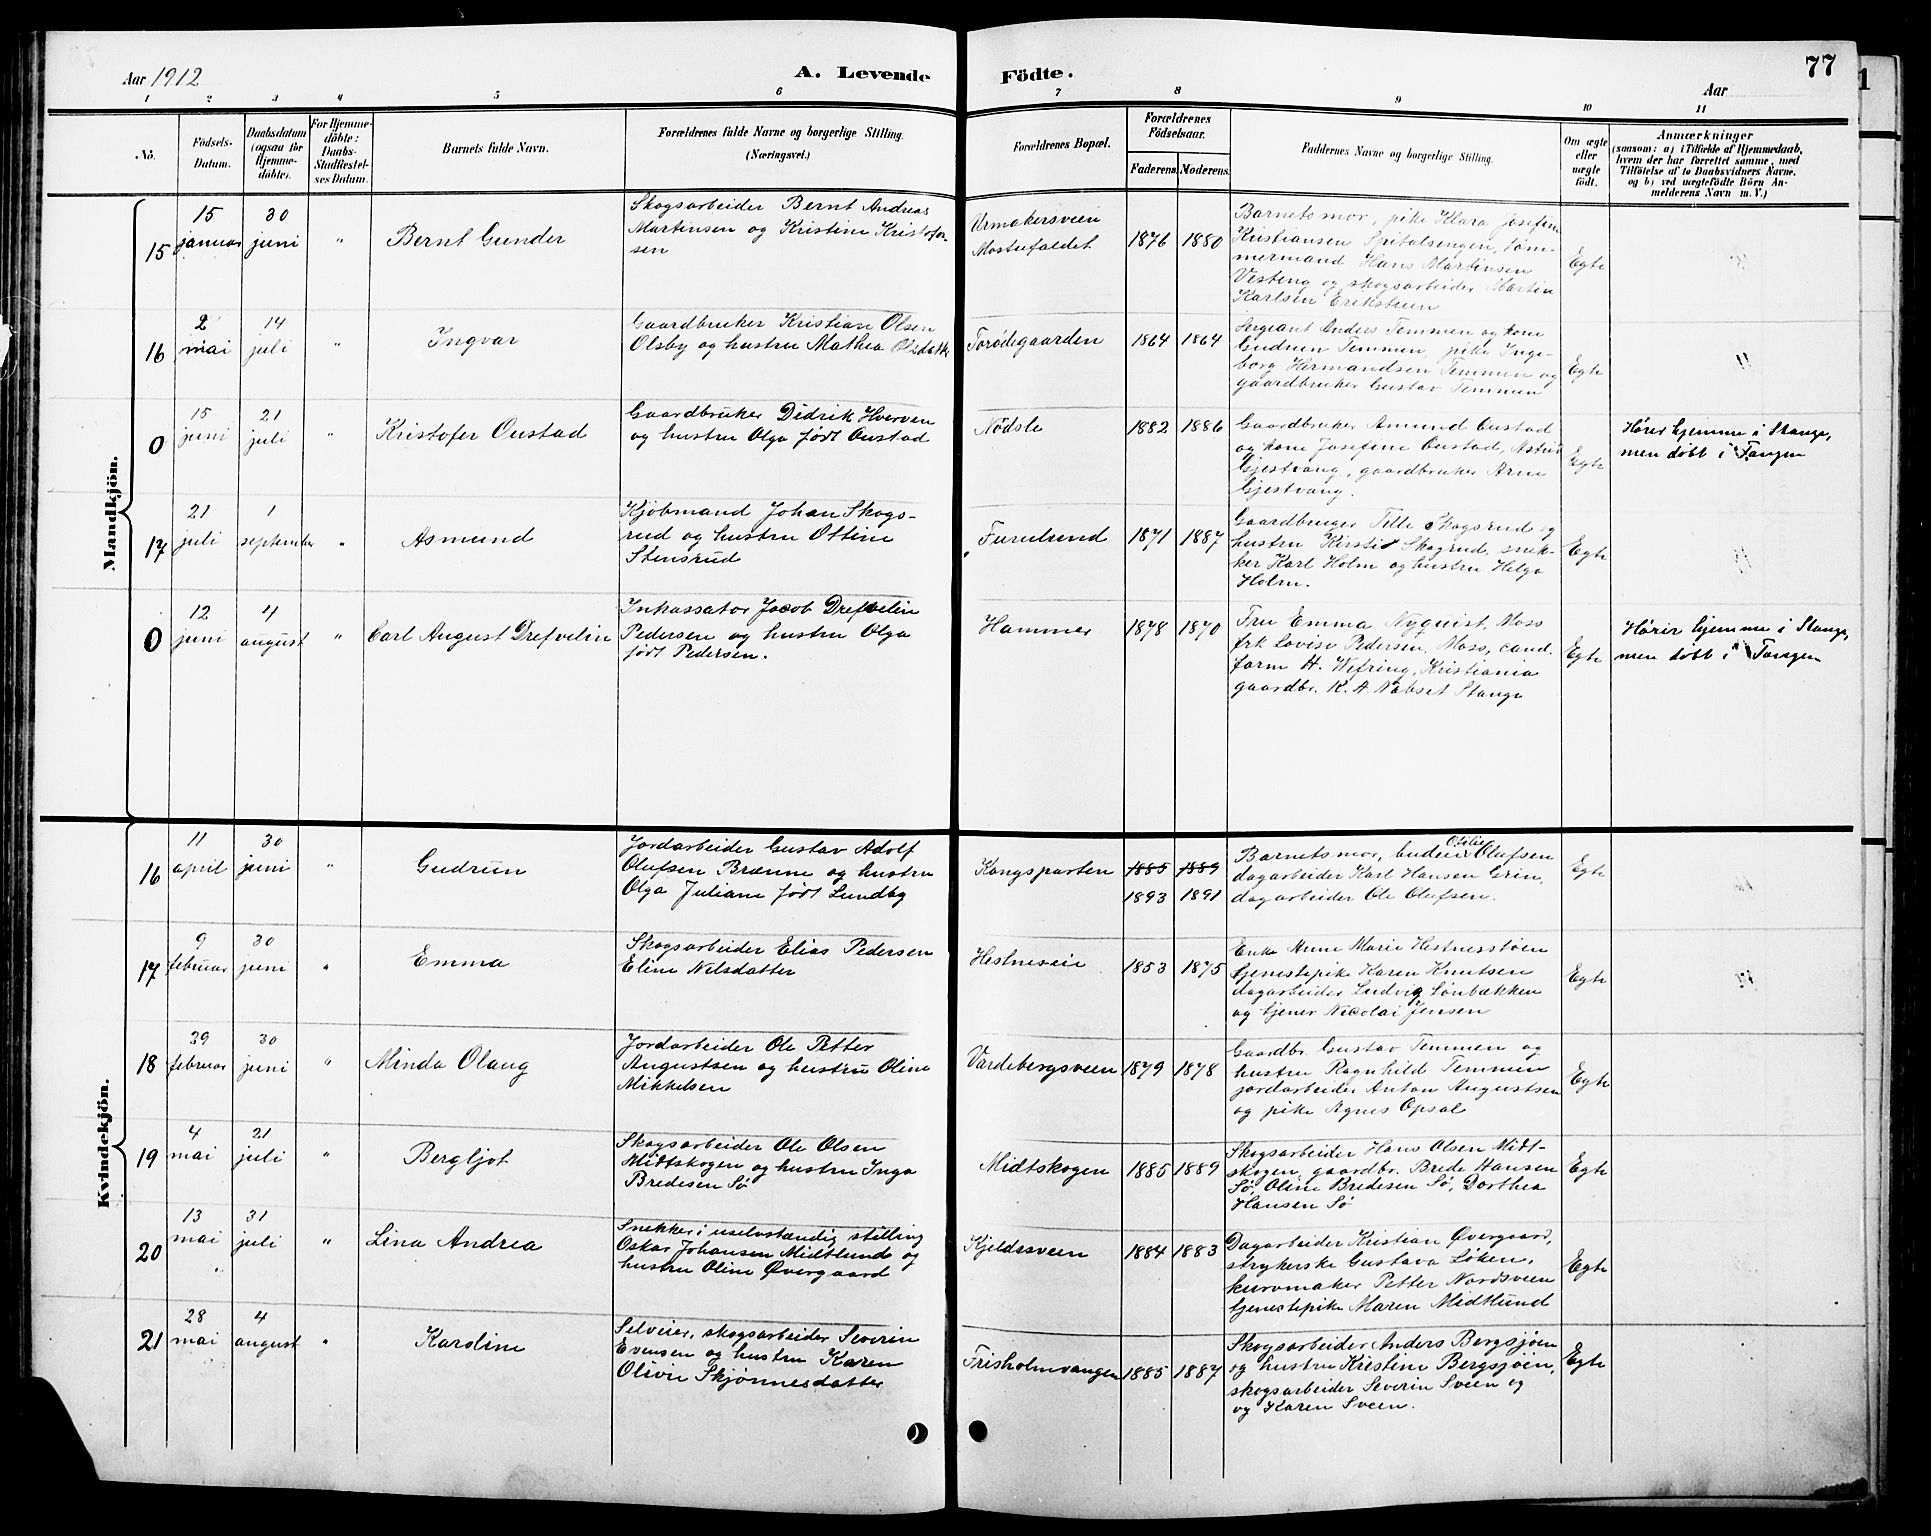 Aar 1912
A. Levende Födte.
77
Aar
1 2 3 4 5 6 7 8 9 10 11
No.
Födsels-Datum.
Daabsdatum (ogsaa for Hjemme-döbte).
For Hjemme-döbte: Daabs-Stadfæstel-ses Datum.
Barnets fulde Navn.
Forældrenes fulde Navne og borgerlige Stilling.
(Næringsvei.)
Forældrenes Bopæl.
Forældrenes Födselsaar.
Faderens.
Moderens.
Faddernes Navne og borgerlige Stilling.
Om ægte eller uægte födt.
Anmærkninger
(saasom: a) i Tilfælde af Hjemmedaab,
hvem der har forrettet samme, med
Tilföielse af to Daabsvidners Navne,
og b) ved uægtefödte Börn An-
melderens Navn m. V.)
Mandkjön.
15
15 januar
30 juni
"
Bernt Gunder
Skogsarbeider Bernt Andreas
Martinsen og Kristine Kristofer-
sen
Urmakersveen
Mostufaldet
1876
1880
Barnets mor, pike Klara Josefine
Kristiansen Spitalsengen, töm-
mermand Hans Martinsen
Vesteng og skogsarbeider Martin
Karlsen Eriksteen
Egte
16
2 mai
14 juli
"
Ingvar
Gaardbruker Kristian Olsen
Olsby og hustru Mathea
Torödegaarden
1864
1864
Sergeant Anders Temmen og kone
Gudrun Temmen, pike Inge-
borg Hermandsen Temmen og
gaardbruker Gustav Temmen
Egte
0
15 juni
21 juli
"
Kristofer Oustad
Gaardbruker Didrik Hverven
og hustru Olga født Oustad
Nödsle
1882
1886
Gaardbruker Amund Oustad
og kone Josefine Oustad, Astrid
Gjestvang, gaardbruker Arne
Gjestvang.
Egte
Hörer hjemme i Stange,
men döbt i Tangen
17
21 juli
1 september
"
Asmund
Kjöbmand Johan Skogs-
rud og hustru Ottine
Stensrud
Furulund
1871
1887
Gaardbruger Tille Skogsrud og
hustru Kirsti Skogrud, snek-
ker Karl Holm og hustru Helga
Holm.
Egte
0
12 juni
4 august
"
Carl August Drefvelin
Inkassator Jacob Drefvelin
Pedersen og hustru Olga
født Pedersen.
Hammer
1878
1870
Fru Emma Nyquist, Moss
frk Lovise Pedersen, Moss, cand.
farm H. Wefring, Kristiania
gaardbr. K. A. Nabset Stange
Egte
Hörir hjemme i Stange,
men döbt i Tangen
Kvindekjön.
16
11 april
30 juni
"
Gudrun
Jordarbeider Gustav Adolf
Olufsen Brænne og hustru
Olga Juliane født Lundby
Kongsparten
1885
1889
1893
1891
Otilie
Barnets mor, budeie Olufsen
dagarbeider Karl Hansen Grin,
dagarbeider Ole Olufsen.
Egte
17
9 februar
30 juni
"
Emma
Skogsarbeider Elias Pedersen
Eline Nilsdatter
Hestneseie
1853
1875
Enke Anne Marie Hestnesstöen
tjenestepike Karen Knutsen
dagarbeider Ludvig Lönbækken
og tjener Nicolai Jensen
Egte
18
29 februar
30 juni
"
Minda Olaug
Jordarbeider Ole Petter
Augustsen og hustru Oline
Mikkelsen
Vardebergsveen
1879
1878
Gaardbr. Gustav Temmen og
hustru Ragnhild Temmen
jordarbeider Anton Augustsen
og pike Agnes Opsal
Egte
19
4 mai
21 juli
"
Bergljot
Skogsarbeider Ole Olsen
Midtskogen og hustru Inga
Bredesen Sö
Midtskogen
1885
1889
Skogsarbeider Hans Olsen Midt-
skogen, gaardbr. Brede Hansen
Sö, Oline Bredesen Sö, Dorthea
Hansen Sö
Egte
20
13 mai
31 juli
"
Lina Andrea
Snekker i uselvstændig stilling
Oskar Johansen Midtlund og
hustru Oline Øvergaard
Kjeldssveen
1884
1883
Dagarbeider Kristian Øvergaard,
strykerske Gustava Löken,
kurvmaker Petter Nordsveen
tjenestepike Maren Midtlund
Egte
21
28 mai
4 august
"
Karoline
Selveier, skogsarbeider Severin
Evensen og hustru Karen
Olivie Skjönnesdatter
Frisholmvangen
1885
1887
Skogsarbeider Anders Bergsjöen
og hustru Kristine Bergsjöen,
skogsarbeider Severin Sveen og
og Karen Sveen.
Egte